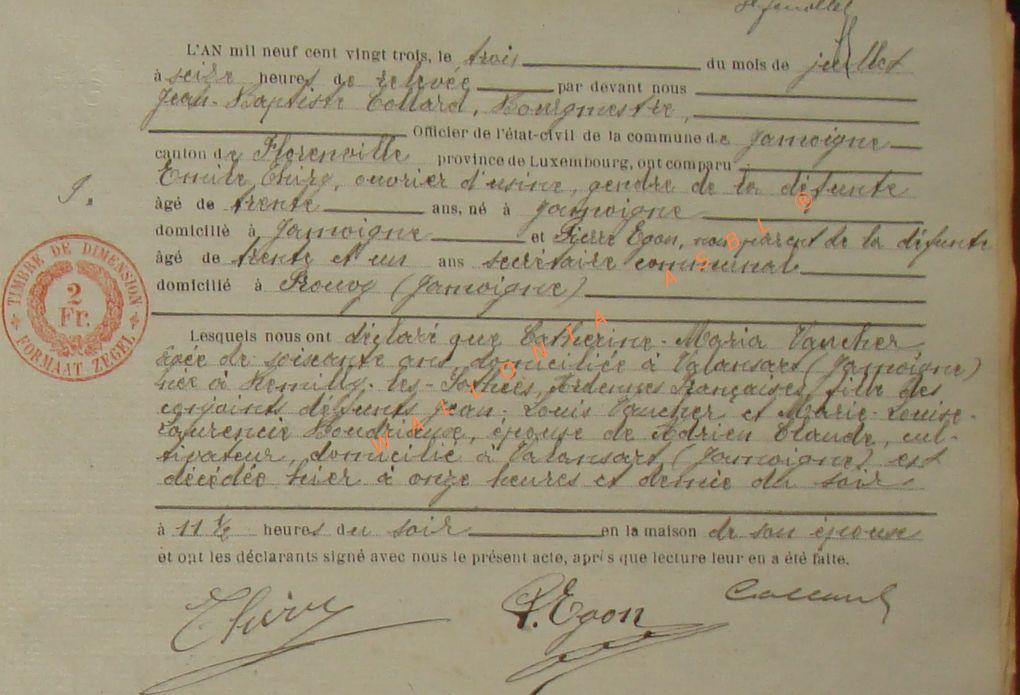 L'AN mil neuf cent vingt trois, le trois du mois de juillet
à seize heures de relevée par devant nous
Jean-Baptiste Collard, Bourgmestre,
Officier de l'état-civil de la commune de Jamoigne
canton de Florenville province de Luxembourg, ont comparu
Emile Thiry, ouvrier d'usine, gendre de la défunte
âgé de trente ans, né à Jamoigne
domicilié à Jamoigne et Pierre Egon, non parent de la défunte
âgé de trente et un ans secrétaire communal
domicilié à Prouvy (Jamoigne)
9.
TIMBRE DE DIMENSION
2
Fr.
FORMAAT ZEGEL
Lesquels nous ont déclaré que Catherine-Maria Vaucher
âgée de soixante ans, domiciliée à Valansart (Jamoigne)
née à Remilly-les-Pothées, Ardennes Françaises, fille des
conjoints défunts Jean-Louis Vaucher et Marie-Louise-
Laurencie Boudriaux, épouse de Adrien Claude, cul-
tivateur, domicilié à Valansart (Jamoigne) est
décédée hier à onze heures et demie du soir
à 11 ½ heures du soir en la maison de son épouse
et ont les déclarants signé avec nous le présent acte, après que lecture leur en a été faite.
Thiry P. Egon Collard
WALLONIA ASBL ®